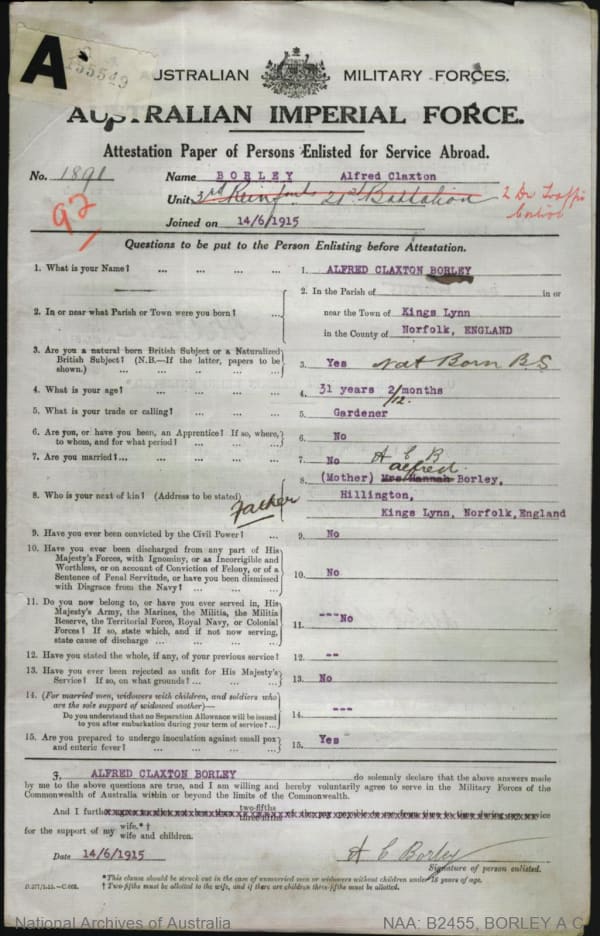 A
155549
AUSTRALIAN MILITARY FORCES.
AUSTRALIAN IMPERIAL FORCE.
Attestation Paper of Persons Enlisted for Service Abroad.
No. 1891 Name BORLEY Alfred Claxton
Unit 3rd Reinfmts 21st Battalion
92
Joined on 14/6/1915
Questions to be put to the Person Enlisting before Attestation.
1. What is your Name? ... ... ... ... 1. ALFRED CLAXTON BORLEY
2. In or near what Parish or Town were you born? ...
2. In the Parish of in or
near the Town of Kings Lynn
in the County of Norfolk, ENGLAND
3. Are you a natural born British Subject or a Naturalized
British Subject? (N.B.—If the latter, papers to be
shown.) ... ... ... ... ...
3. Yes Nat Born BS
4. What is your age? ... ... ... ... 4. 31 years 2/12 months
5. What is your trade or calling? ... ... ... 5. Gardener
6. Are you, or have you been, an Apprentice? If so, where,
to whom, and for what period? ... ... ...
6. No
7. Are you married?... ... ... ... ... 7. No A C B
8. Who is your next of kin? (Address to be stated) Father
alfred.
8. (Mother) Mrs Hannah Borley,
Hillington,
Kings Lynn, Norfolk, England
9. Have you ever been convicted by the Civil Power? ... 9. No
10. Have you ever been discharged from any part of His
Majesty's Forces, with Ignominy, or as Incorrigible and
Worthless, or on account of Conviction of Felony, or of a
Sentence of Penal Servitude, or have you been dismissed
with Disgrace from the Navy? ... ... ...
10. No
11. Do you now belong to, or have you ever served in, His
Majesty's Army, the Marines, the Militia, the Militia
Reserve, the Territorial Force, Royal Navy, or Colonial
Forces? If so, state which, and if not now serving,
state cause of discharge ... ... ... ...
11. ---No
12. Have you stated the whole, if any, of your previous service? 12. --
13. Have you ever been rejected as unfit for His Majesty's
Service? If so, on what grounds? ... ... ...
13. No
14. (For married men, widowers with children, and soldiers who
are the sole support of widowed mother)—
Do you understand that no Separation Allowance will be issued
to you after embarkation during your term of service? ...
14. ---
15. Are you prepared to undergo inoculation against small pox
and enteric fever? ... ... ... ...
15. Yes
I, ALFRED CLAXTON BORLEY do solemnly declare that the above answers made
by me to the above questions are true, and I am willing and hereby voluntarily agree to serve in the Military Forces of the
Commonwealth of Australia within or beyond the limits of the Commonwealth.
two-fifths
And I further
three-fifths
for the support of my wife.*†
wife and children.
Date 14/6/1915 A C Borley
Signature of person enlisted.
*This clause should be struck out in the case of unmarried men or widowers without children under 18 years of age.
† Two-fifths must be allotted to the wife, and if there are children three-fifths must be allotted.
National Archives of Australia NAA: B2455, BORLEY A C